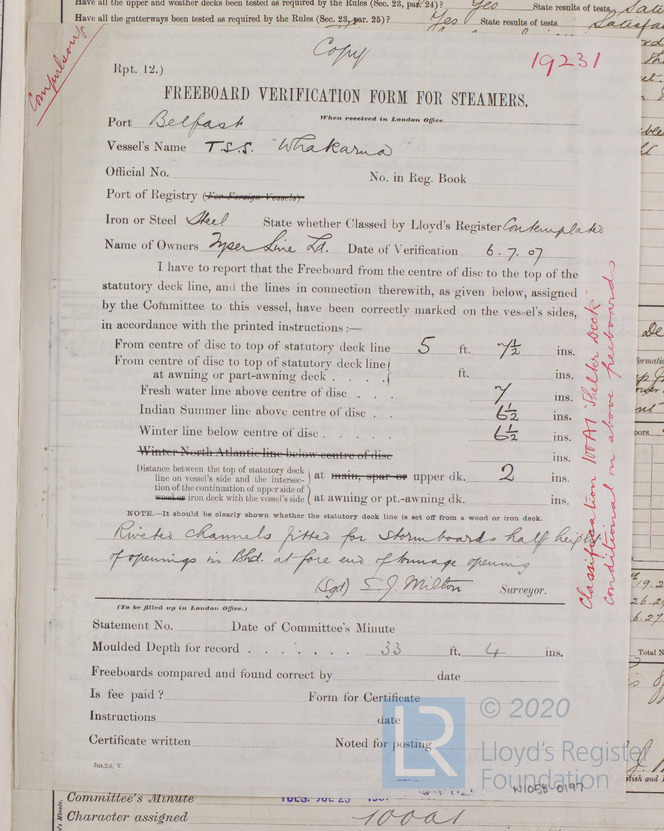 Have all the upper and weather decks been tested as required by the Rules (Sec. 23, par. 24)? Yes State results of tests
Have all the gutterways been tested as required by the Rules (Sec. 23, par. 25)? Yes State results of tests Satisfa
Compulsory
Copy
19231
Rpt. 12.)
FREEBOARD VERIFICATION FORM FOR STEAMERS.
When received in London Office
Port Belfast
Vessel's Name T.S.S. "Whakarua"
Official No. No. in Reg. Book
Port of Registry (For Foreign Vessels)
Iron or Steel Steel State whether Classed by Lloyd's Register Contemplated
Name of Owners Tyser Line Ld. Date of Verification 6.7.07
I have to report that the Freeboard from the centre of disc to the top of the
statutory deck line, and the lines in connection therewith, as given below, assigned
by the Committee to this vessel, have been correctly marked on the vessel's sides,
in accordance with the printed instructions:—
From centre of disc to top of statutory deck line 5 ft. 7½ ins.
From centre of disc to top of statutory deck line
at awning or part-awning deck . . . . ft. ins.
Fresh water line above centre of disc . . . 7 ins.
Indian Summer line above centre of disc . . 6½ ins.
Winter line below centre of disc . . . . . 6½ ins.
Winter North Atlantic line below centre of disc ins.
Distance between the top of statutory deck
line on vessel's side and the intersec-
tion of the continuation of upper side of
wood or iron deck with the vessel's side
at main, spar or upper dk. 2 ins.
at awning or pt.-awning dk. ins.
NOTE.—It should be clearly shewn whether the statutory deck line is set off from a wood or iron deck.
Riveted channels fitted for stormboards half height
of openings in Bhd. at fore end of tonnage opening
(Sgd) S. J. Milton Surveyor.
Classification 100A1 "Shelter Deck"
conditional on above freeboards
(To be filled up in London Office.)
Statement No. Date of Committee's Minute
Moulded Depth for record . . . . . . . 33 ft. 4 ins.
Freeboards compared and found correct by date
Is fee paid? Form for Certificate
Instructions date
Certificate written Noted for posting
LR
© 2020
Lloyd's Register
Foundation
N1058-0197
Committee's Minute TUES. JUL 23
Character assigned 100A1